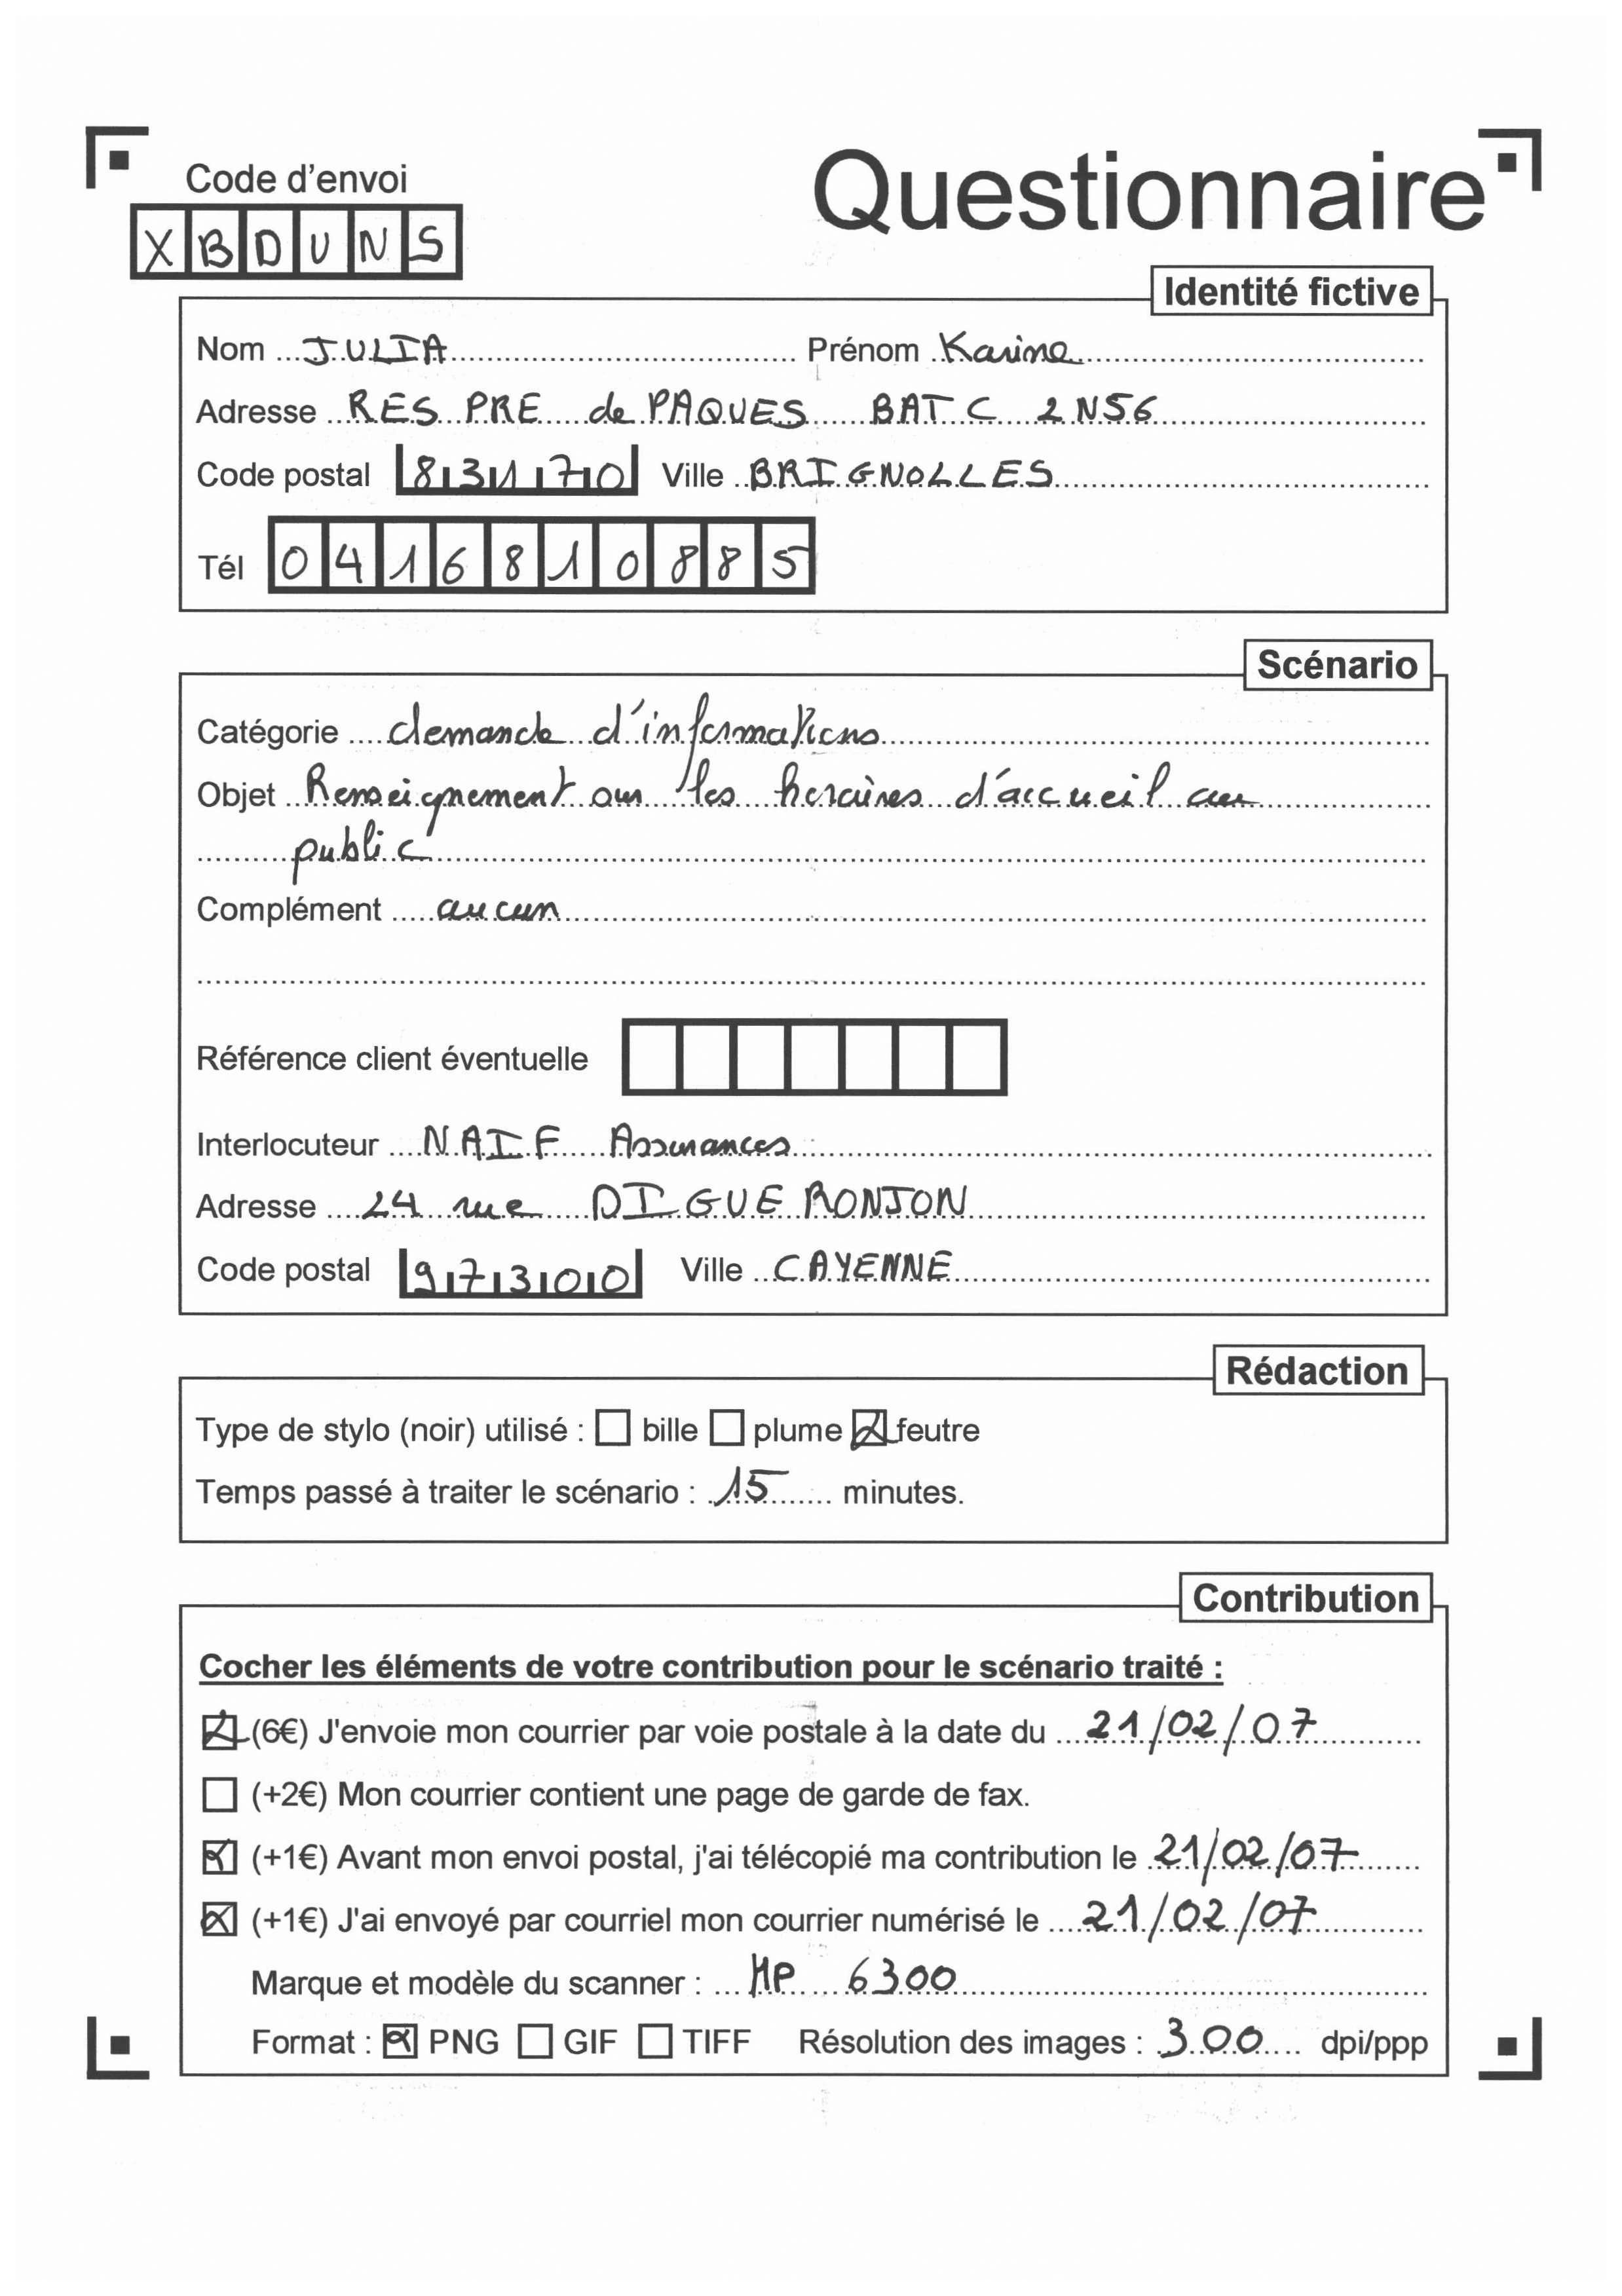 Code d'envoi
Questionnaire
XBDUNS
Identité fictive
Nom JULIA Prénom Karine
Adresse RES PRE de PAQUES BAT C 2 N56
Code postal 83170 Ville BRIGNOLLES
Tél 0416810885
Scénario
Catégorie demande d'informations
Objet Renseignement sur les horaires d'accueil au
public
Complément aucun
Référence client éventuelle
Interlocuteur NAIF Assurances
Adresse 24 rue DIGUE RONJON
Code postal 97300 Ville CAYENNE
Rédaction
Type de stylo (noir) utilisé : bille plume feutre
Temps passé à traiter le scénario : 15 minutes.
Contribution
Cocher les éléments de votre contribution pour le scénario traité :
(6€) J'envoie mon courrier par voie postale à la date du 21/02/07
(+2€) Mon courrier contient une page de garde de fax.
(+1€) Avant mon envoi postal, j'ai télécopié ma contribution le 21/02/07
(+1€) J'ai envoyé par courriel mon courrier numérisé le 21/02/07
Marque et modèle du scanner : HP 6300
Format : PNG GIF TIFF Résolution des images : 300 dpi/ppp